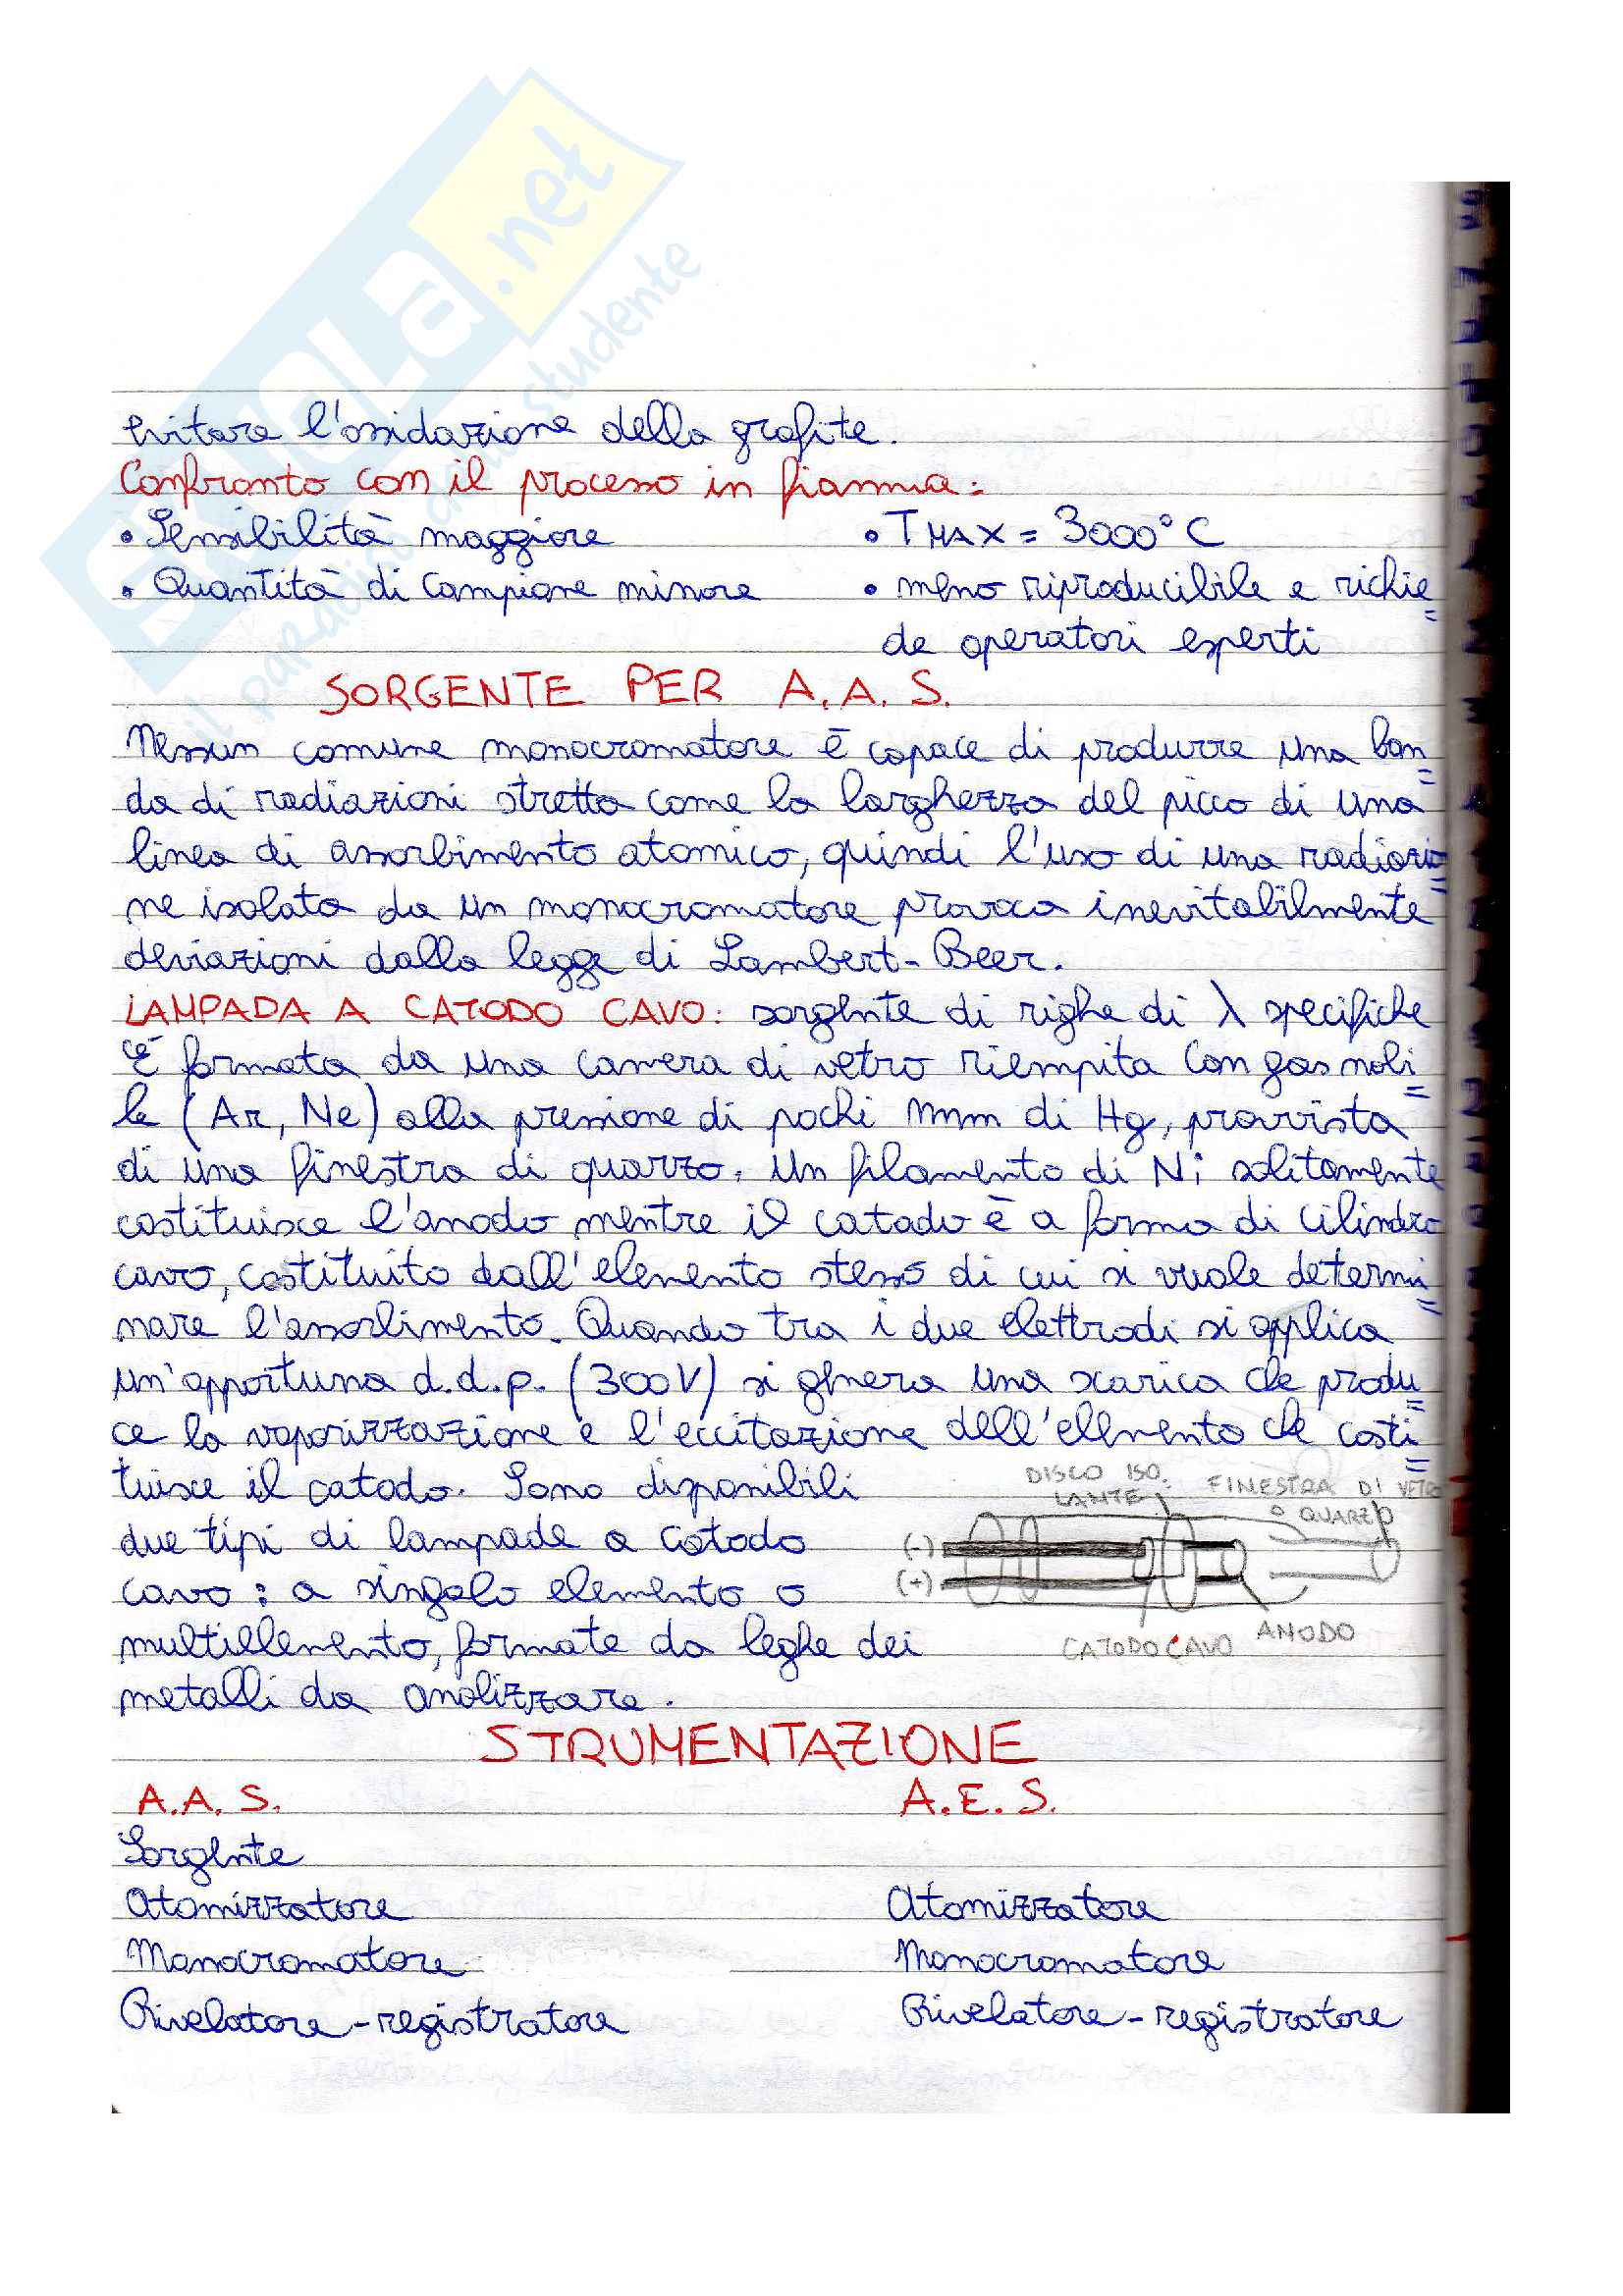 SKUOLA.net
il paradiso dello studente
evitare l'ossidazione della grafite.
Confronto con il processo in fiamma:
• Sensibilità maggiore • TMAX = 3000°C
• Quantità di campione minore • meno riproducibile e richie=
de operatori esperti
SORGENTE PER A.A.S.
Nessun comune monocromatore è capace di produrre una ban=
da di radiazioni stretta come la larghezza del picco di una
linea di assorbimento atomico, quindi l'uso di una radiazio=
ne isolata da un monocromatore provoca inevitabilmente
deviazioni dalla legge di Lambert-Beer.
LAMPADA A CATODO CAVO: sorgente di righe di λ specifiche
È formata da una camera di vetro riempita con gas nobi=
le (Ar, Ne) alla pressione di pochi mm di Hg, provvista
di una finestra di quarzo. Un filamento di Ni solitamente
costituisce l'anodo mentre il catodo è a forma di cilindro
cavo, costituito dall'elemento stesso di cui si vuole determi=
nare l'assorbimento. Quando tra i due elettrodi si applica
un'opportuna d.d.p. (300V) si genera una scarica che produ=
ce la vaporizzazione e l'eccitazione dell'elemento che costi=
tuisce il catodo. Sono disponibili
due tipi di lampade a catodo
cavo: a singolo elemento o
multielemento, formate da leghe dei
metalli da analizzare.
DISCO ISO=
LANTE
FINESTRA DI VETRO
O QUARZO
(-)
(+)
CATODO CAVO
ANODO
STRUMENTAZIONE
A.A.S. A.E.S.
Sorgente
Atomizzatore Atomizzatore
Monocromatore Monocromatore
Rivelatore-registratore Rivelatore-registratore